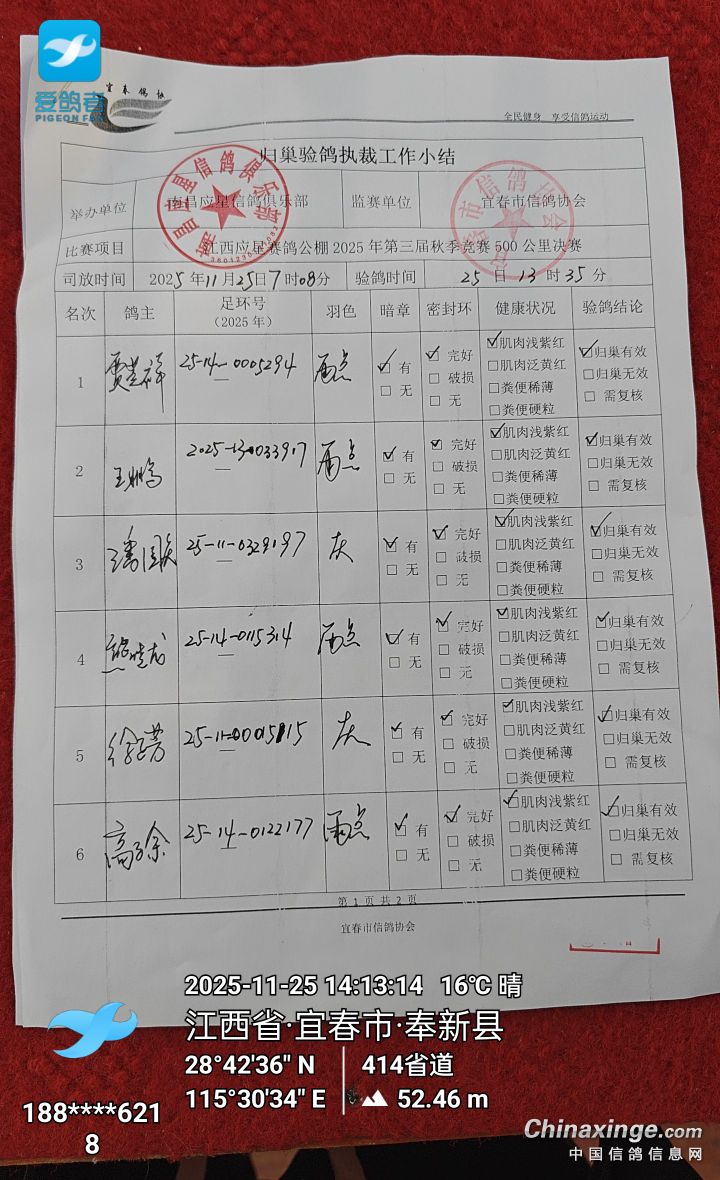 爱鸽者
PIGEON F
宜春鸽协
全民健身 享受信鸽运动
归巢验鸽执裁工作小结
举办单位 南昌应星信鸽俱乐部 监赛单位 宜春市信鸽协会
比赛项目 江西应星赛鸽公棚 2025 年第三届秋季竞赛 500 公里决赛
司放时间 2025 年 11 月 25 日 7 时 08 分 验鸽时间 25 日 13 时 35 分
名次 鸽主 足环号 羽色 暗章 密封环 健康状况 验鸽结论
（2025 年）
1 25-14-0005294 雨点 ☑ 有 □ 无 ☑ 完好 □ 破损 □ 无 ☑肌肉浅紫红 □肌肉泛黄红 □粪便稀薄 □粪便硬粒 ☑归巢有效 □归巢无效 □ 需复核
2 王鹏 2025-13-0033917 雨点 ☑ 有 □ 无 ☑ 完好 □ 破损 □ 无 ☑肌肉浅紫红 □肌肉泛黄红 □粪便稀薄 □粪便硬粒 ☑归巢有效 □归巢无效 □ 需复核
3 潘国 25-11-0329197 灰 ☑ 有 □ 无 ☑ 完好 □ 破损 □ 无 ☑肌肉浅紫红 □肌肉泛黄红 □粪便稀薄 □粪便硬粒 ☑归巢有效 □归巢无效 □ 需复核
4 熊 龙 25-14-0115314 雨点 ☑ 有 □ 无 ☑ 完好 □ 破损 □ 无 ☑肌肉浅紫红 □肌肉泛黄红 □粪便稀薄 □粪便硬粒 ☑归巢有效 □归巢无效 □ 需复核
5 徐 芳 25-11-0001515 灰 ☑ 有 □ 无 ☑ 完好 □ 破损 □ 无 ☑肌肉浅紫红 □肌肉泛黄红 □粪便稀薄 □粪便硬粒 ☑归巢有效 □归巢无效 □ 需复核
6 高 余 25-14-0122177 雨点 ☑ 有 □ 无 ☑ 完好 □ 破损 □ 无 ☑肌肉浅紫红 □肌肉泛黄红 □粪便稀薄 □粪便硬粒 ☑归巢有效 □归巢无效 □ 需复核
第 1 页 共 2 页
宜春市信鸽协会
2025-11-25 14:13:14 16℃ 晴
江西省·宜春市·奉新县
28°42'36" N 414省道
115°30'34" E 52.46 m
188****621
8
Chinaxinge.com
中国信鸽信息网